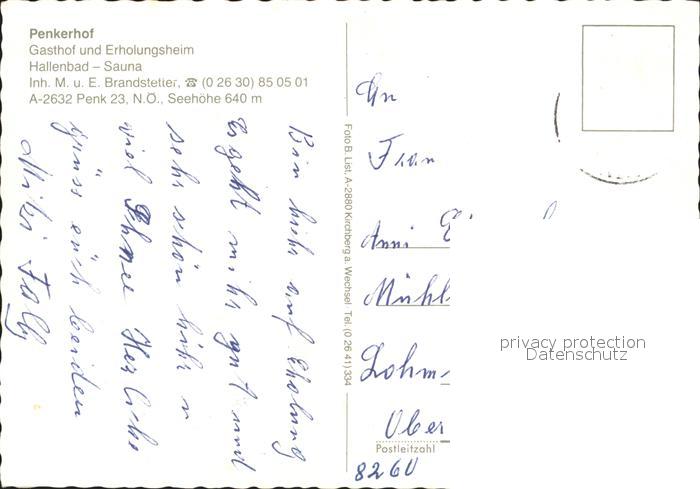 Penkerhof
Gasthof und Erholungsheim
Hallenbad – Sauna
Inh. M. u. E. Brandstetter, ☎ (0 26 30) 85 05 01
A-2632 Penk 23, N.Ö., Seehöhe 640 m
Bin hihr auf Eholung
Es geht mihr gut und
sehr schön hihr n
viel Schnee Herliche
grüss euch beiden
Mitzi
Foto B. List, A-2880 Kirchberg a. Wechsel Tel. (0 26 41) 334
An
Frau
Anni
Mühl
Lohm
Ober
Postleitzahl
8260
privacy protection
Datenschutz